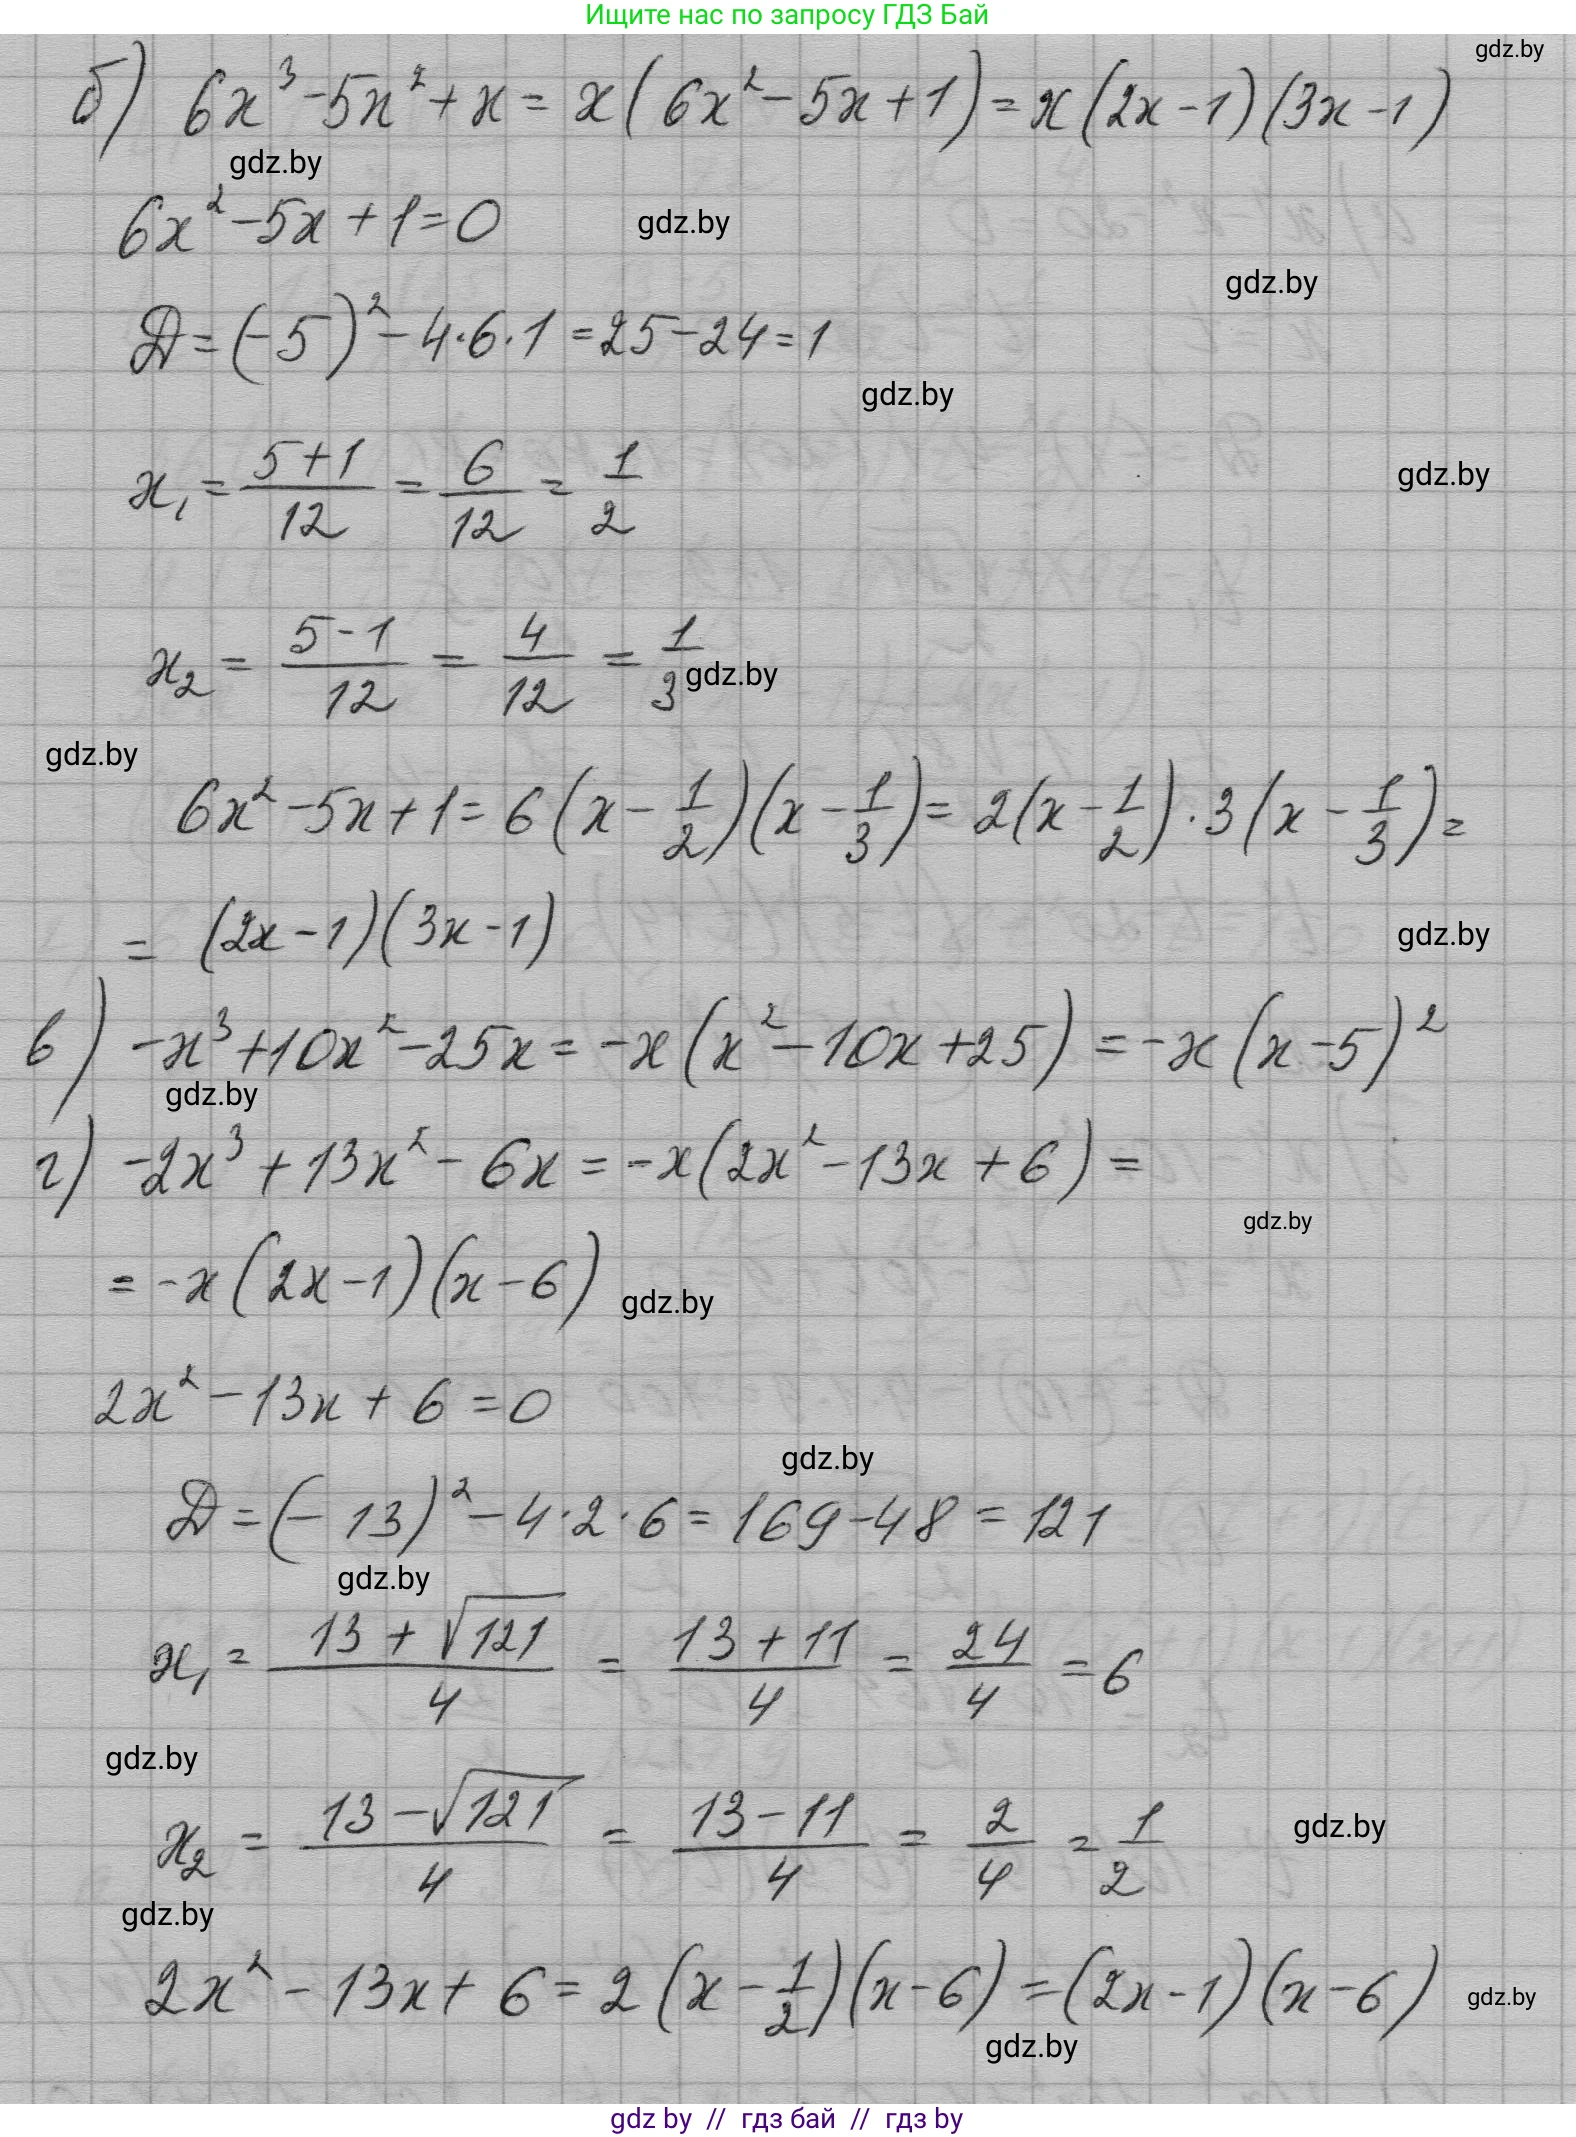 Ищите нас по запросу ГДЗ Бай
gdz.by
б) 6x³-5x²+x = x(6x²-5x+1) = x(2x-1)(3x-1)
gdz.by
6x²-5x+1=0
gdz.by
gdz.by
D=(-5)²-4·6·1=25-24=1
gdz.by
x₁ = (5+1)/12 = 6/12 = 1/2
gdz.by
x₂ = (5-1)/12 = 4/12 = 1/3
gdz.by
gdz.by
6x²-5x+1=6(x-1/2)(x-1/3)=2(x-1/2)·3(x-1/3)=
= (2x-1)(3x-1)
gdz.by
в) -x³+10x²-25x=-x(x²-10x+25)=-x(x-5)²
gdz.by
г) -2x³+13x²-6x=-x(2x²-13x+6)=
gdz.by
= -x(2x-1)(x-6)
gdz.by
2x²-13x+6=0
gdz.by
D=(-13)²-4·2·6=169-48=121
gdz.by
x₁ = (13+√121)/4 = (13+11)/4 = 24/4 = 6
gdz.by
x₂ = (13-√121)/4 = (13-11)/4 = 2/4 = 1/2
gdz.by
gdz.by
2x²-13x+6=2(x-1/2)(x-6)=(2x-1)(x-6)
gdz.by
gdz.by
gdz by // гдз бай // гдз by